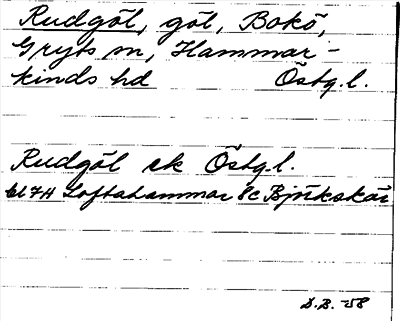 Rudgöl, göl, Bokö,
Gryts sn, Hammar-
kinds hd Östg.l.
Rudgöl ek Östg.l.
bl 7H Loftahammar 8c Björkskär
D.B. -58